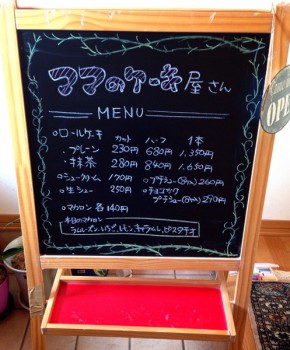 ママのケーキ屋さん
MENU
ロールケーキ カット ハーフ 1本
・プレーン 230円 680円 1,350円
・抹茶 280円 840円 1,650円
シュークリーム 170円
プチシュー(5ヶ入) 260円
生シュー 250円
チョコチップ
プチシュー(5ヶ入) 270円
マカロン 各140円
本日のマカロン
ラムレーズン、いちご、レモン、キャラメル、ピスタチオ
OPE